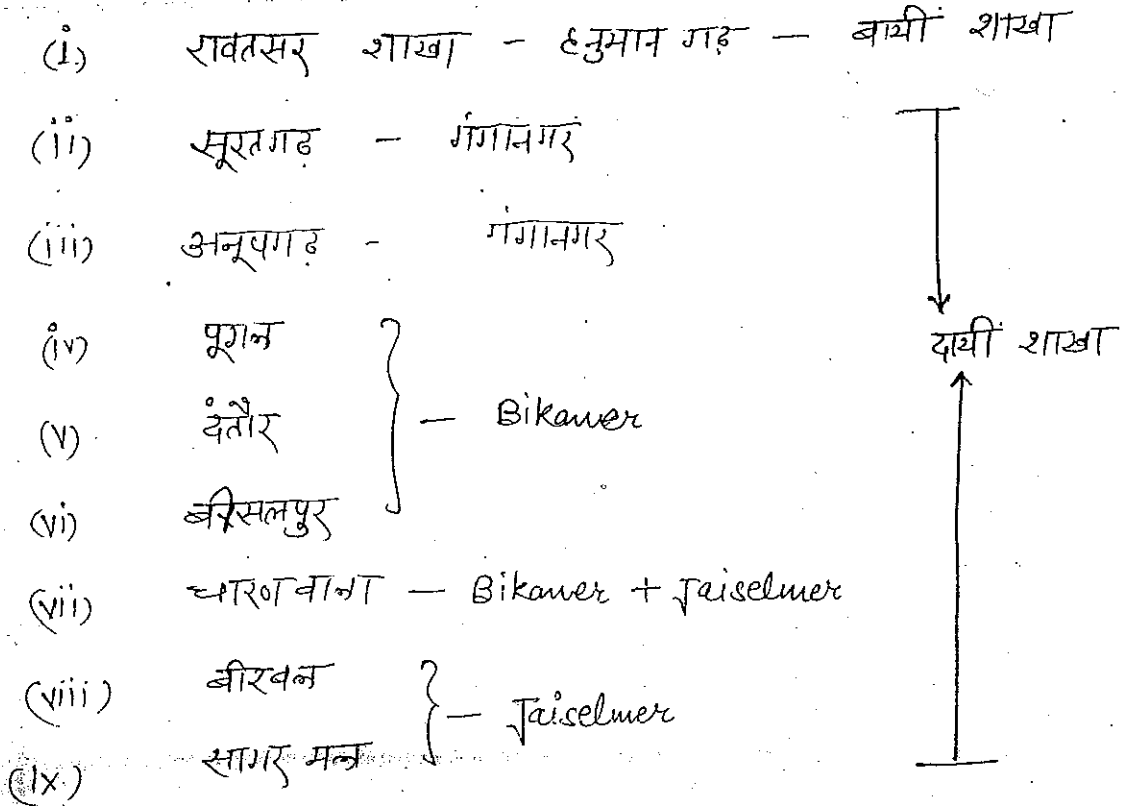 (i) रावतसर शाखा - हनुमान गढ़ - बायीं शाखा
(ii) सूरतगढ़ - गंगानगर
(iii) अनूपगढ़ - गंगानगर
(iv) पूगल
दायीं शाखा
(v) दंतौर - Bikaner
(vi) बीसलपुर
(vii) चारणवाला - Bikaner + Jaiselmer
(viii) बीरबल
- Jaiselmer
(ix) सागर मल